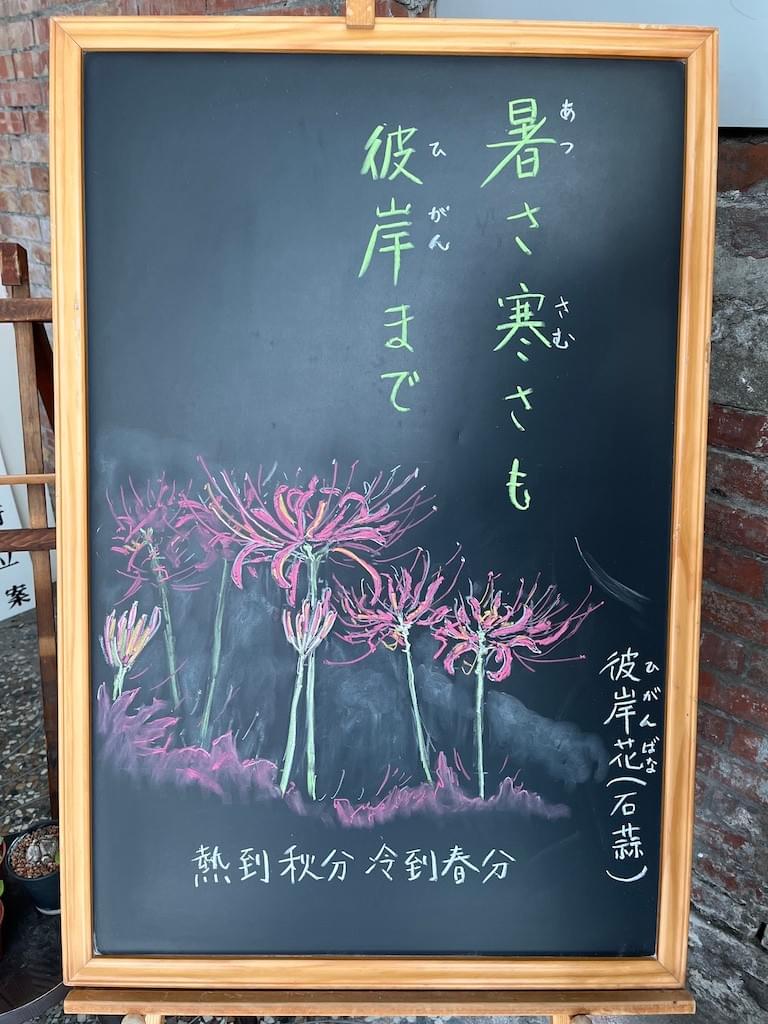 暑さ寒さも
あつ
さむ
彼岸まで
ひ
がん
彼岸花(石蒜)
ひがんばな
熱到秋分 冷到春分
立案